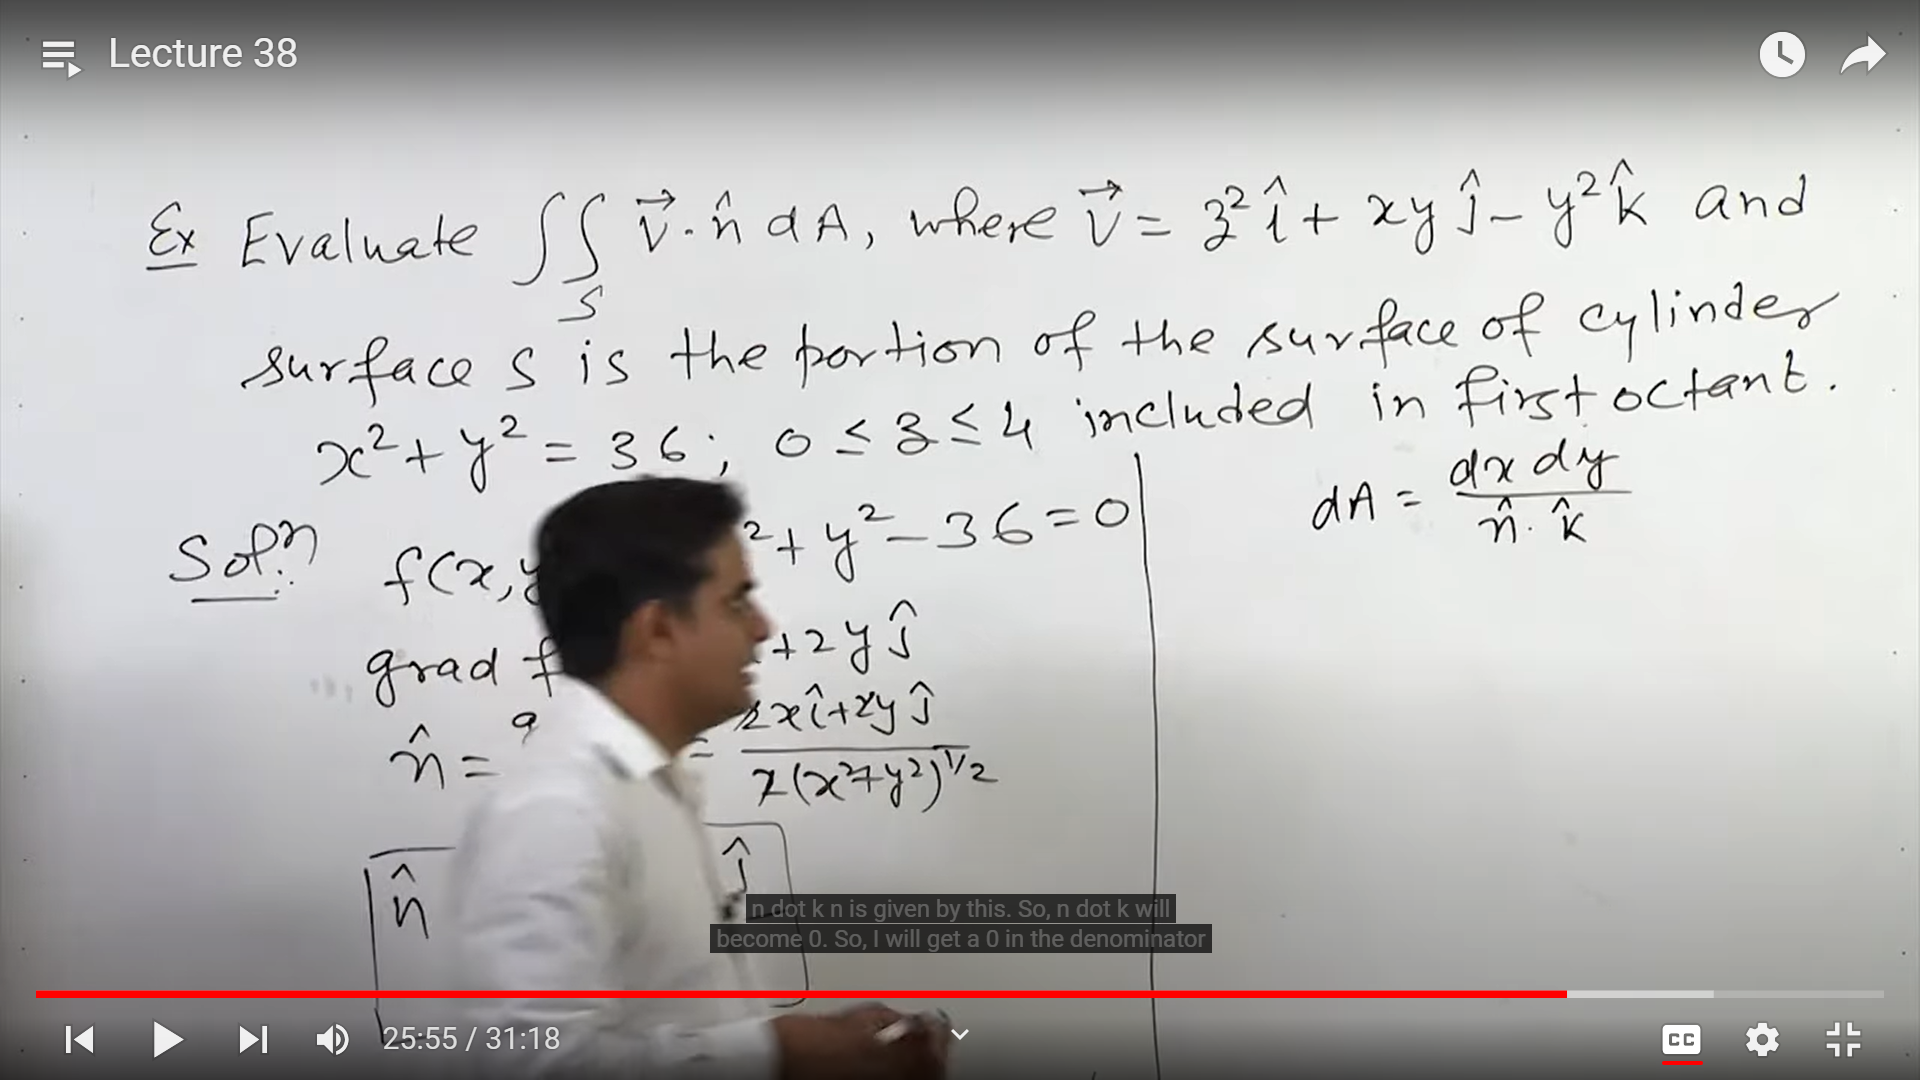 Lecture 38
Ex Evaluate ∬_S v⃗·n̂ dA, where v⃗ = z² î + xy ĵ - y² k̂ and
surface S is the portion of the surface of cylinder
x² + y² = 36; 0 ≤ z ≤ 4 included in first octant.
Solⁿ: f(x,y ² + y² - 36 = 0
grad f +2yĵ
n̂ = = 2xî+2yĵ / 2(x²+y²)^1/2
n̂ ĵ
dA = dx dy / n̂·k̂
n dot k n is given by this. So, n dot k will
become 0. So, I will get a 0 in the denominator
25:55 / 31:18
CC